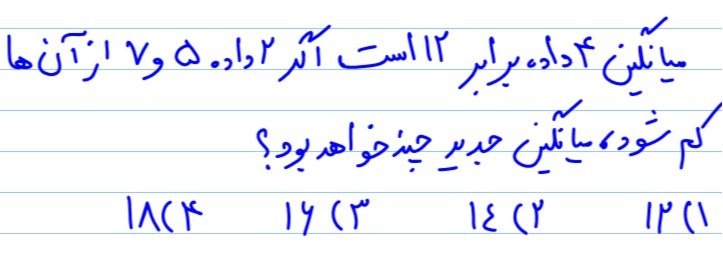 میانگین ۴ داده برابر ۱۲ است اگر ۲ داده ۵ و ۷ از آن ها
کم شود، میانگین جدید چند خواهد بود؟
۱) ۱۲ ۲) ۱٤ ۳) ۱۶ ۴) ۱۸